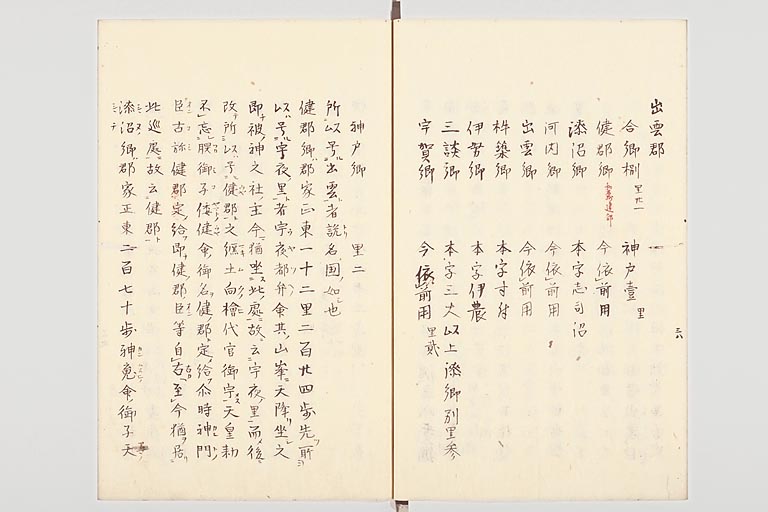 出雲郡
合郷捌 里廿一 神戸壹 里一
健郡郷 今依前用
漆沼郷 本字志司沼
河内郷 今依前用
出雲郷 今依前用
杵築郷 本字寸付
伊努郷 本字伊農
三談郷 本字三太以上漆郷別里参
宇賀郷 今依前用 里貳
神戸郷 里二
所以号出雲者説名国如也
健郡郷郡家正東一十二里二百廿四歩先所
以号宇夜里者宇夜都弁命其山峯天降坐之
即被神之社主今猶坐此處故云宇夜里而後
改所以号健郡之纒向檜代宮御宇天皇勅
不忘朕御子倭健命御名健郡定給尒時神門
臣古祢健郡定給即健郡臣等自古至今猶居
此巡處故云健郡
漆沼郷郡家正東二百七十歩神魂命御子天